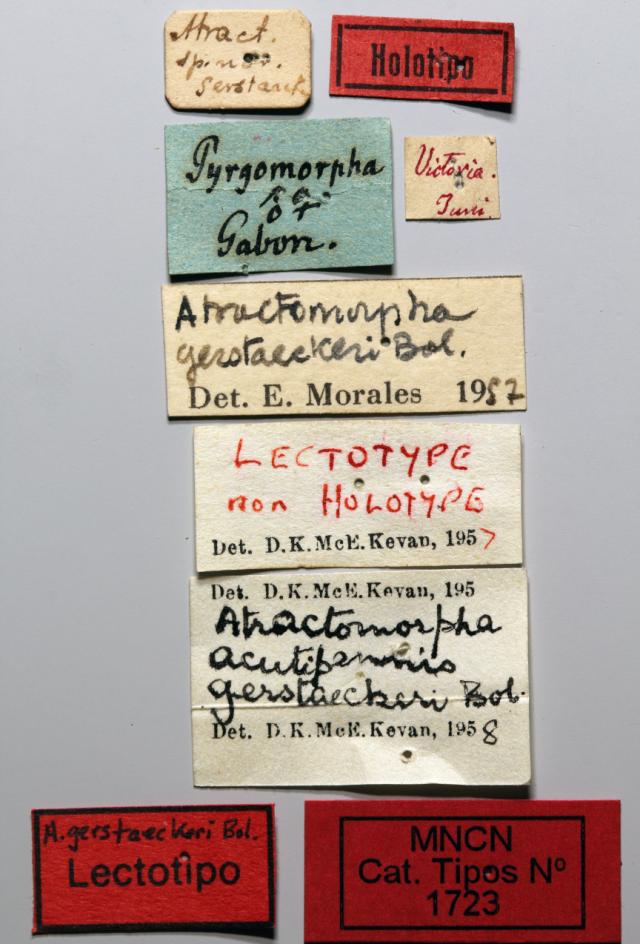 Atract.
sp. nov.
Gerstaeck.
Holotipo
Pyrgomorpha
Gabon.
Victoria.
Juni.
Atractomorpha
gerstaeckeri Bol.
Det. E. Morales 1957
LECTOTYPE
non HOLOTYPE
Det. D.K.McE.Kevan, 1957
Det. D.K.McE.Kevan, 195
Atractomorpha
acutipennis
gerstaeckeri Bol.
Det. D.K.McE.Kevan, 1958
A. gerstaeckeri Bol.
Lectotipo
MNCN
Cat. Tipos Nº
1723